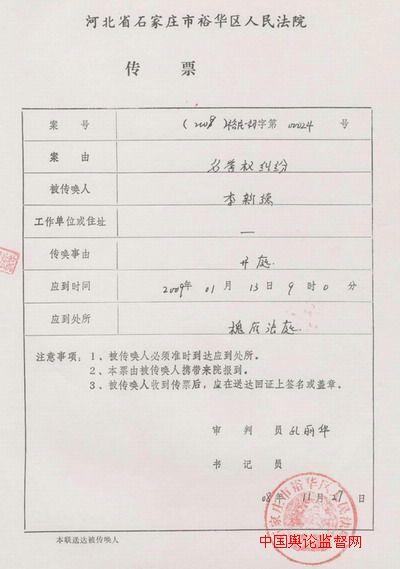 河北省石家庄市裕华区人民法院
传票
案号 (2008)裕民一初字第 00024 号
案由 名誉权纠纷
被传唤人 李新德
工作单位或住址 —
传唤事由 开庭
应到时间 2009年 01月 13日 9时 0分
应到处所 槐底法庭
注意事项：1、被传唤人必须准时到达应到处所。
2、本票由被传唤人携带来院报到。
3、被传唤人收到传票后，应在送达回证上签名或盖章。
审判员 孔丽华
书记员
08年 11月 27日
石家庄市裕华区人民法院
本联送达被传唤人
中国舆论监督网